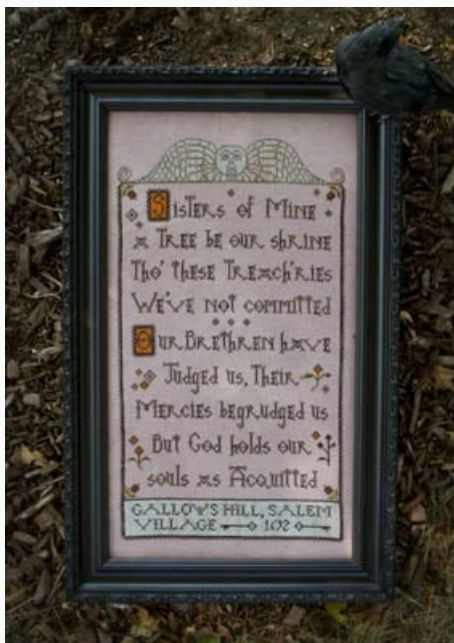 Sisters of Mine
A Tree be our shrine
Tho' these Treach'ries
We've not committed
Our Brethren have
Judged us, Their
Mercies begrudged us
But God holds our
souls as Acquitted
GALLOW'S HILL, SALEM
VILLAGE 1692